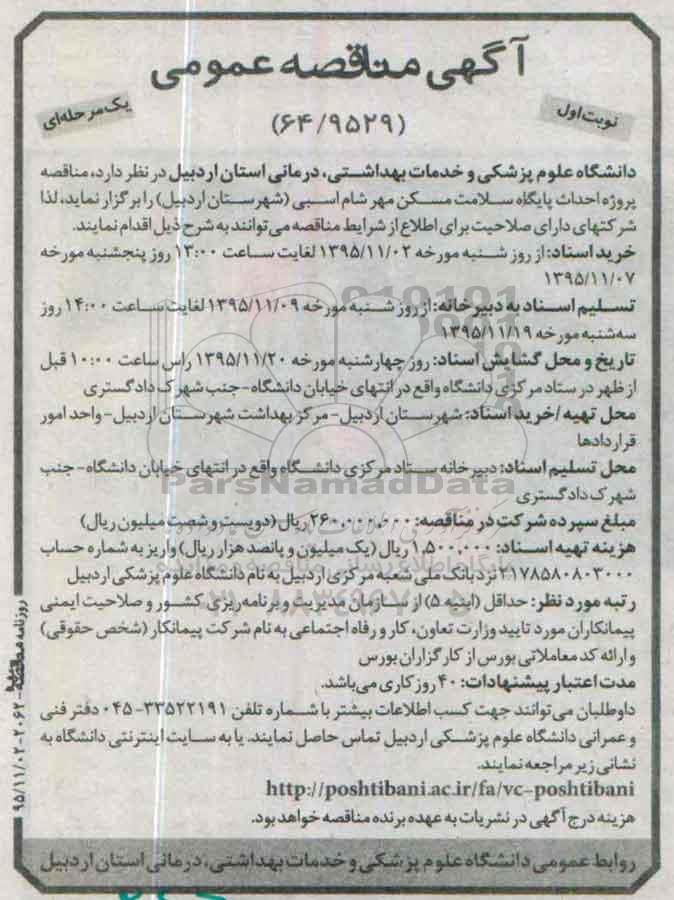 آگهی مناقصه عمومی
نوبت اول
یک مرحله‌ای
(۶۴/۹۵۲۹)
دانشگاه علوم پزشکی و خدمات بهداشتی، درمانی استان اردبیل در نظر دارد، مناقصه
پروژه احداث پایگاه سلامت مسکن مهر شام اسبی (شهرستان اردبیل) را برگزار نماید، لذا
شرکتهای دارای صلاحیت برای اطلاع از شرایط مناقصه می‌توانند به شرح ذیل اقدام نمایند.
خرید اسناد: از روز شنبه مورخه ۱۳۹۵/۱۱/۰۲ لغایت ساعت ۱۳:۰۰ روز پنجشنبه مورخه
۱۳۹۵/۱۱/۰۷
تسلیم اسناد به دبیرخانه: از روز شنبه مورخه ۱۳۹۵/۱۱/۰۹ لغایت ساعت ۱۴:۰۰ روز
سه‌شنبه مورخه ۱۳۹۵/۱۱/۱۹
تاریخ و محل گشایش اسناد: روز چهارشنبه مورخه ۱۳۹۵/۱۱/۲۰ راس ساعت ۱۰:۰۰ قبل
از ظهر در ستاد مرکزی دانشگاه واقع در انتهای خیابان دانشگاه- جنب شهرک دادگستری
محل تهیه/خرید اسناد: شهرستان اردبیل- مرکز بهداشت شهرستان اردبیل- واحد امور
قراردادها
محل تسلیم اسناد: دبیرخانه ستاد مرکزی دانشگاه واقع در انتهای خیابان دانشگاه- جنب
شهرک دادگستری
ParsNamadData
مبلغ سپرده شرکت در مناقصه: ۲۶۰,۰۰۰,۰۰۰ ریال (دویست و شصت میلیون ریال)
هزینه تهیه اسناد: ۱,۵۰۰,۰۰۰ ریال (یک میلیون و پانصد هزار ریال) واریز به شماره حساب
۲۱۷۸۵۸۰۸۰۳۰۰۰ نزد بانک ملی شعبه مرکزی اردبیل به نام دانشگاه علوم پزشکی اردبیل
رتبه مورد نظر: حداقل (ابنیه ۵) از سازمان مدیریت و برنامه‌ریزی کشور و صلاحیت ایمنی
پیمانکاران مورد تایید وزارت تعاون، کار و رفاه اجتماعی به نام شرکت پیمانکار (شخص حقوقی)
و ارائه کد معاملاتی بورس از کارگزاران بورس
مدت اعتبار پیشنهادات: ۴۰ روز کاری می‌باشد.
داوطلبان می‌توانند جهت کسب اطلاعات بیشتر با شماره تلفن ۳۳۵۲۲۱۹۱-۰۴۵ دفتر فنی
و عمرانی دانشگاه علوم پزشکی اردبیل تماس حاصل نمایند. یا به سایت اینترنتی دانشگاه به
نشانی زیر مراجعه نمایند.
http://poshtibani.ac.ir/fa/vc-poshtibani
هزینه درج آگهی در نشریات به عهده برنده مناقصه خواهد بود.
روابط عمومی دانشگاه علوم پزشکی و خدمات بهداشتی، درمانی استان اردبیل
روزنامه
۹۵/۱۱/۰۲-۲۰۶۲